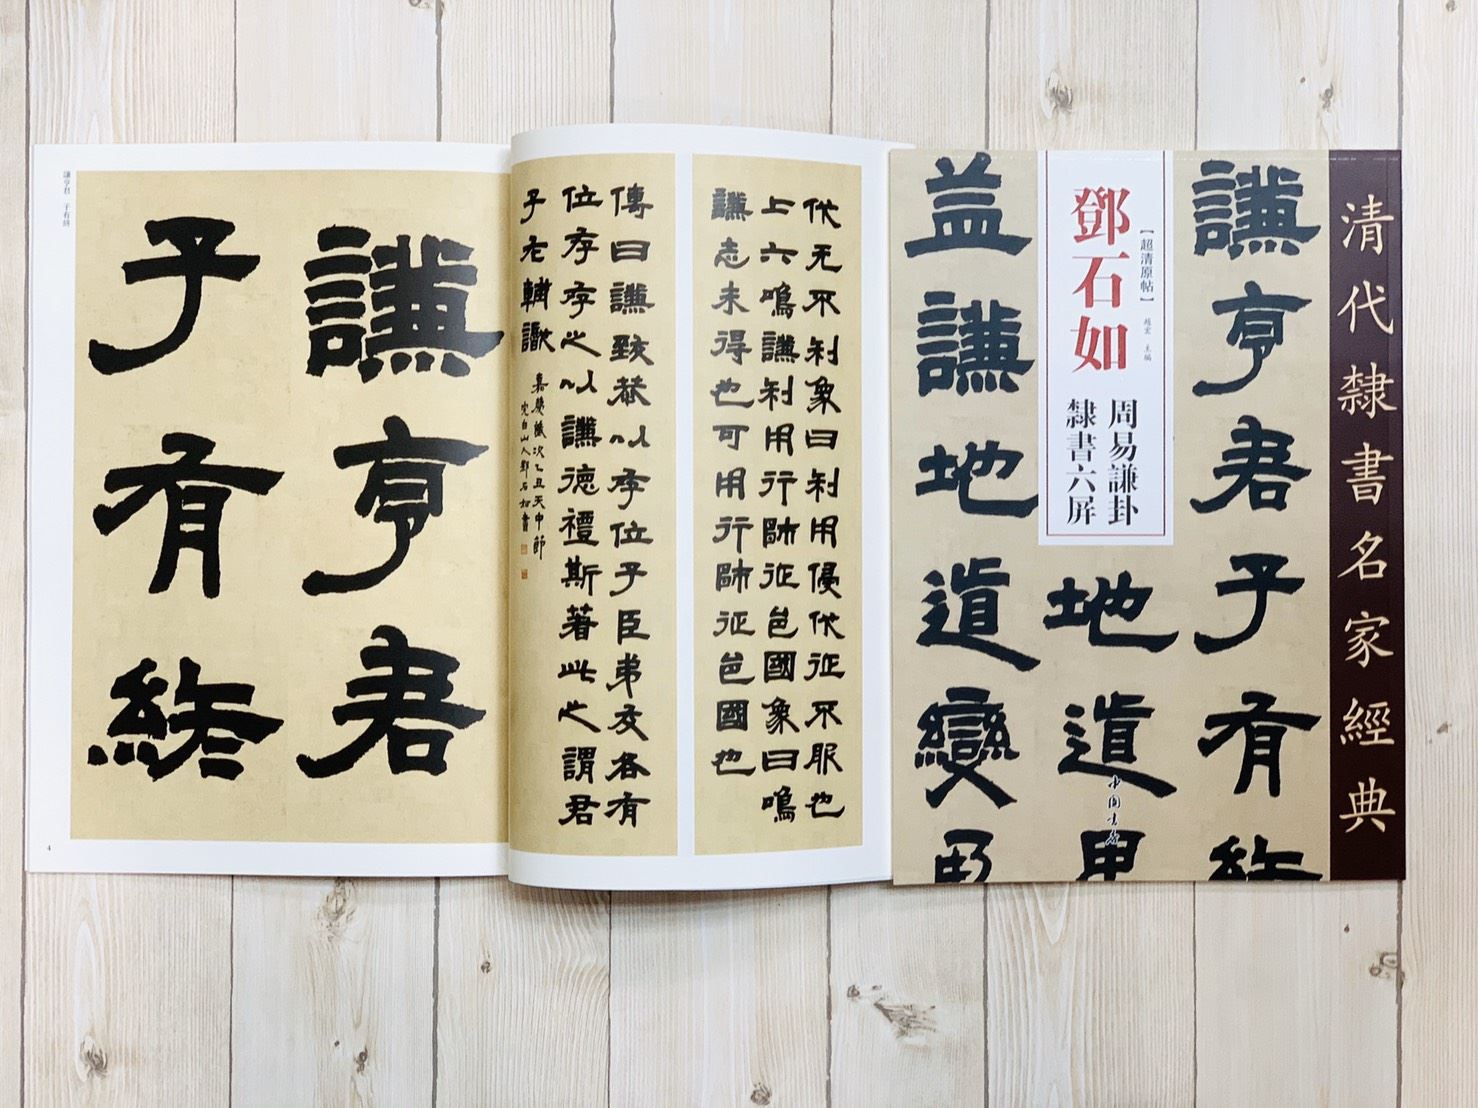 謙亨君 子有終
謙亨君
子有終
4
伐无不利象曰利用侵伐征不服也
上六鳴謙利用行師征邑國象曰鳴
謙志未得也可用行師征邑國也
傳曰謙致恭以存位子臣弟友各有
位存存之以謙德禮斯著此之謂君
子
嘉慶歲次乙丑天中節
完白山人鄧石如書
清代隸書名家經典
謙亨君子有終
【超清原帖】
主編
鄧石如
周易謙卦
隸書六屏
地道
中國書店
益謙地道變